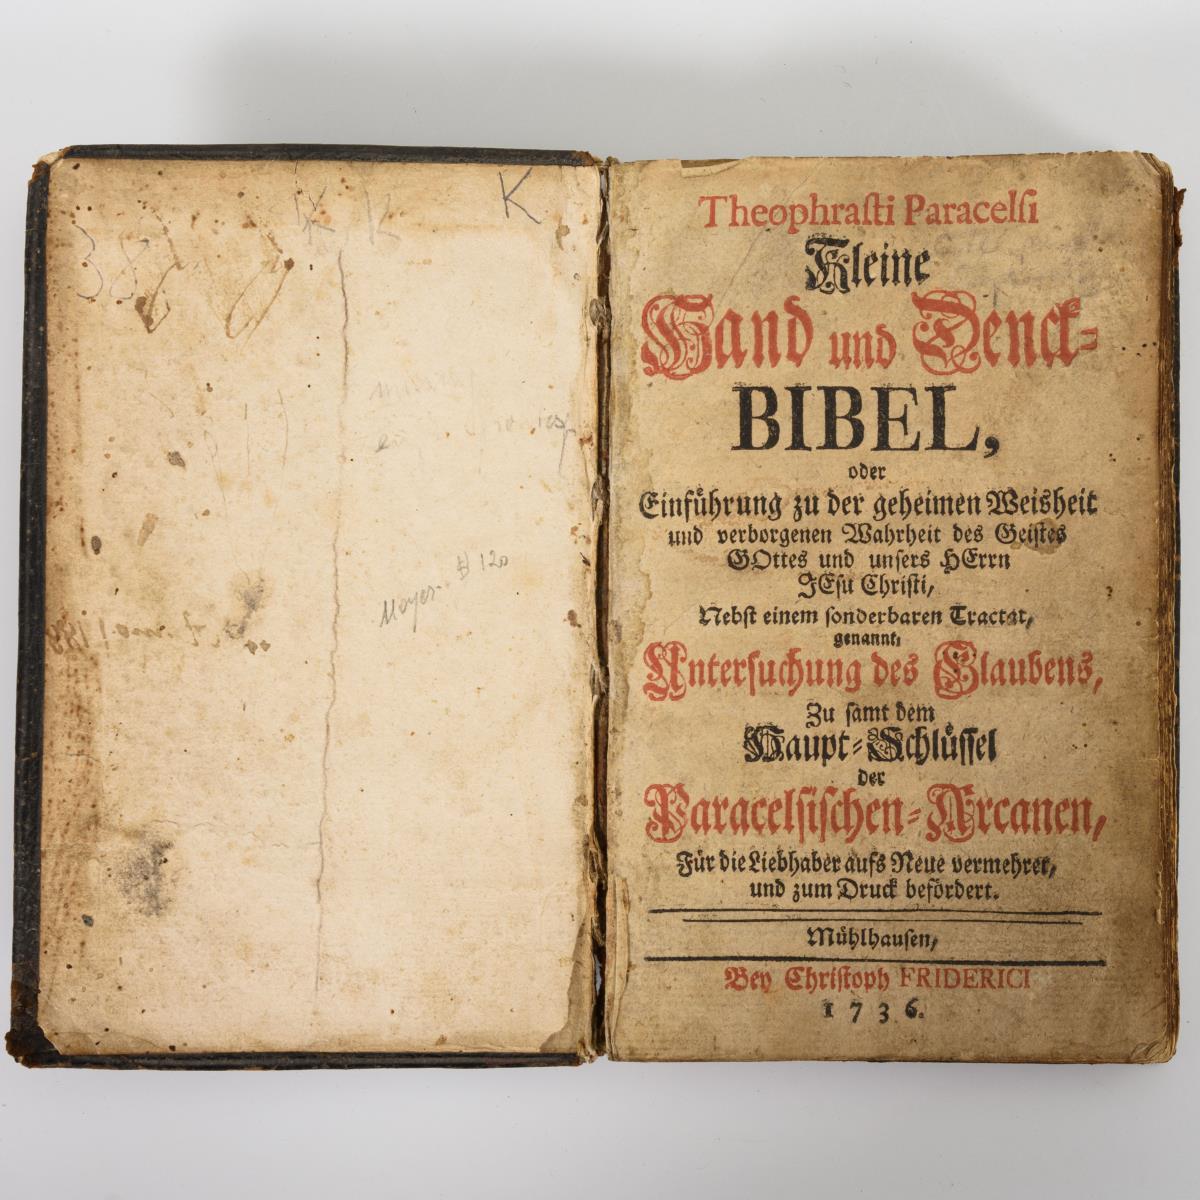 K
K
K
38
Meyer. 120
Theophrasti Paracelsi
Kleine
Hand und Denck-
BIBEL,
oder
Einführung zu der geheimen Weisheit
und verborgenen Wahrheit des Geistes
GOttes und unsers HErrn
JEsu Christi,
Nebst einem sonderbaren Tractat,
genannt,
Untersuchung des Glaubens,
Zu samt dem
Haupt-Schlüssel
der
Paracelsischen-Arcanen,
Für die Liebhaber aufs Neue vermehret,
und zum Druck befördert.
Mühlhausen,
Bey Christoph FRIDERICI
1736.